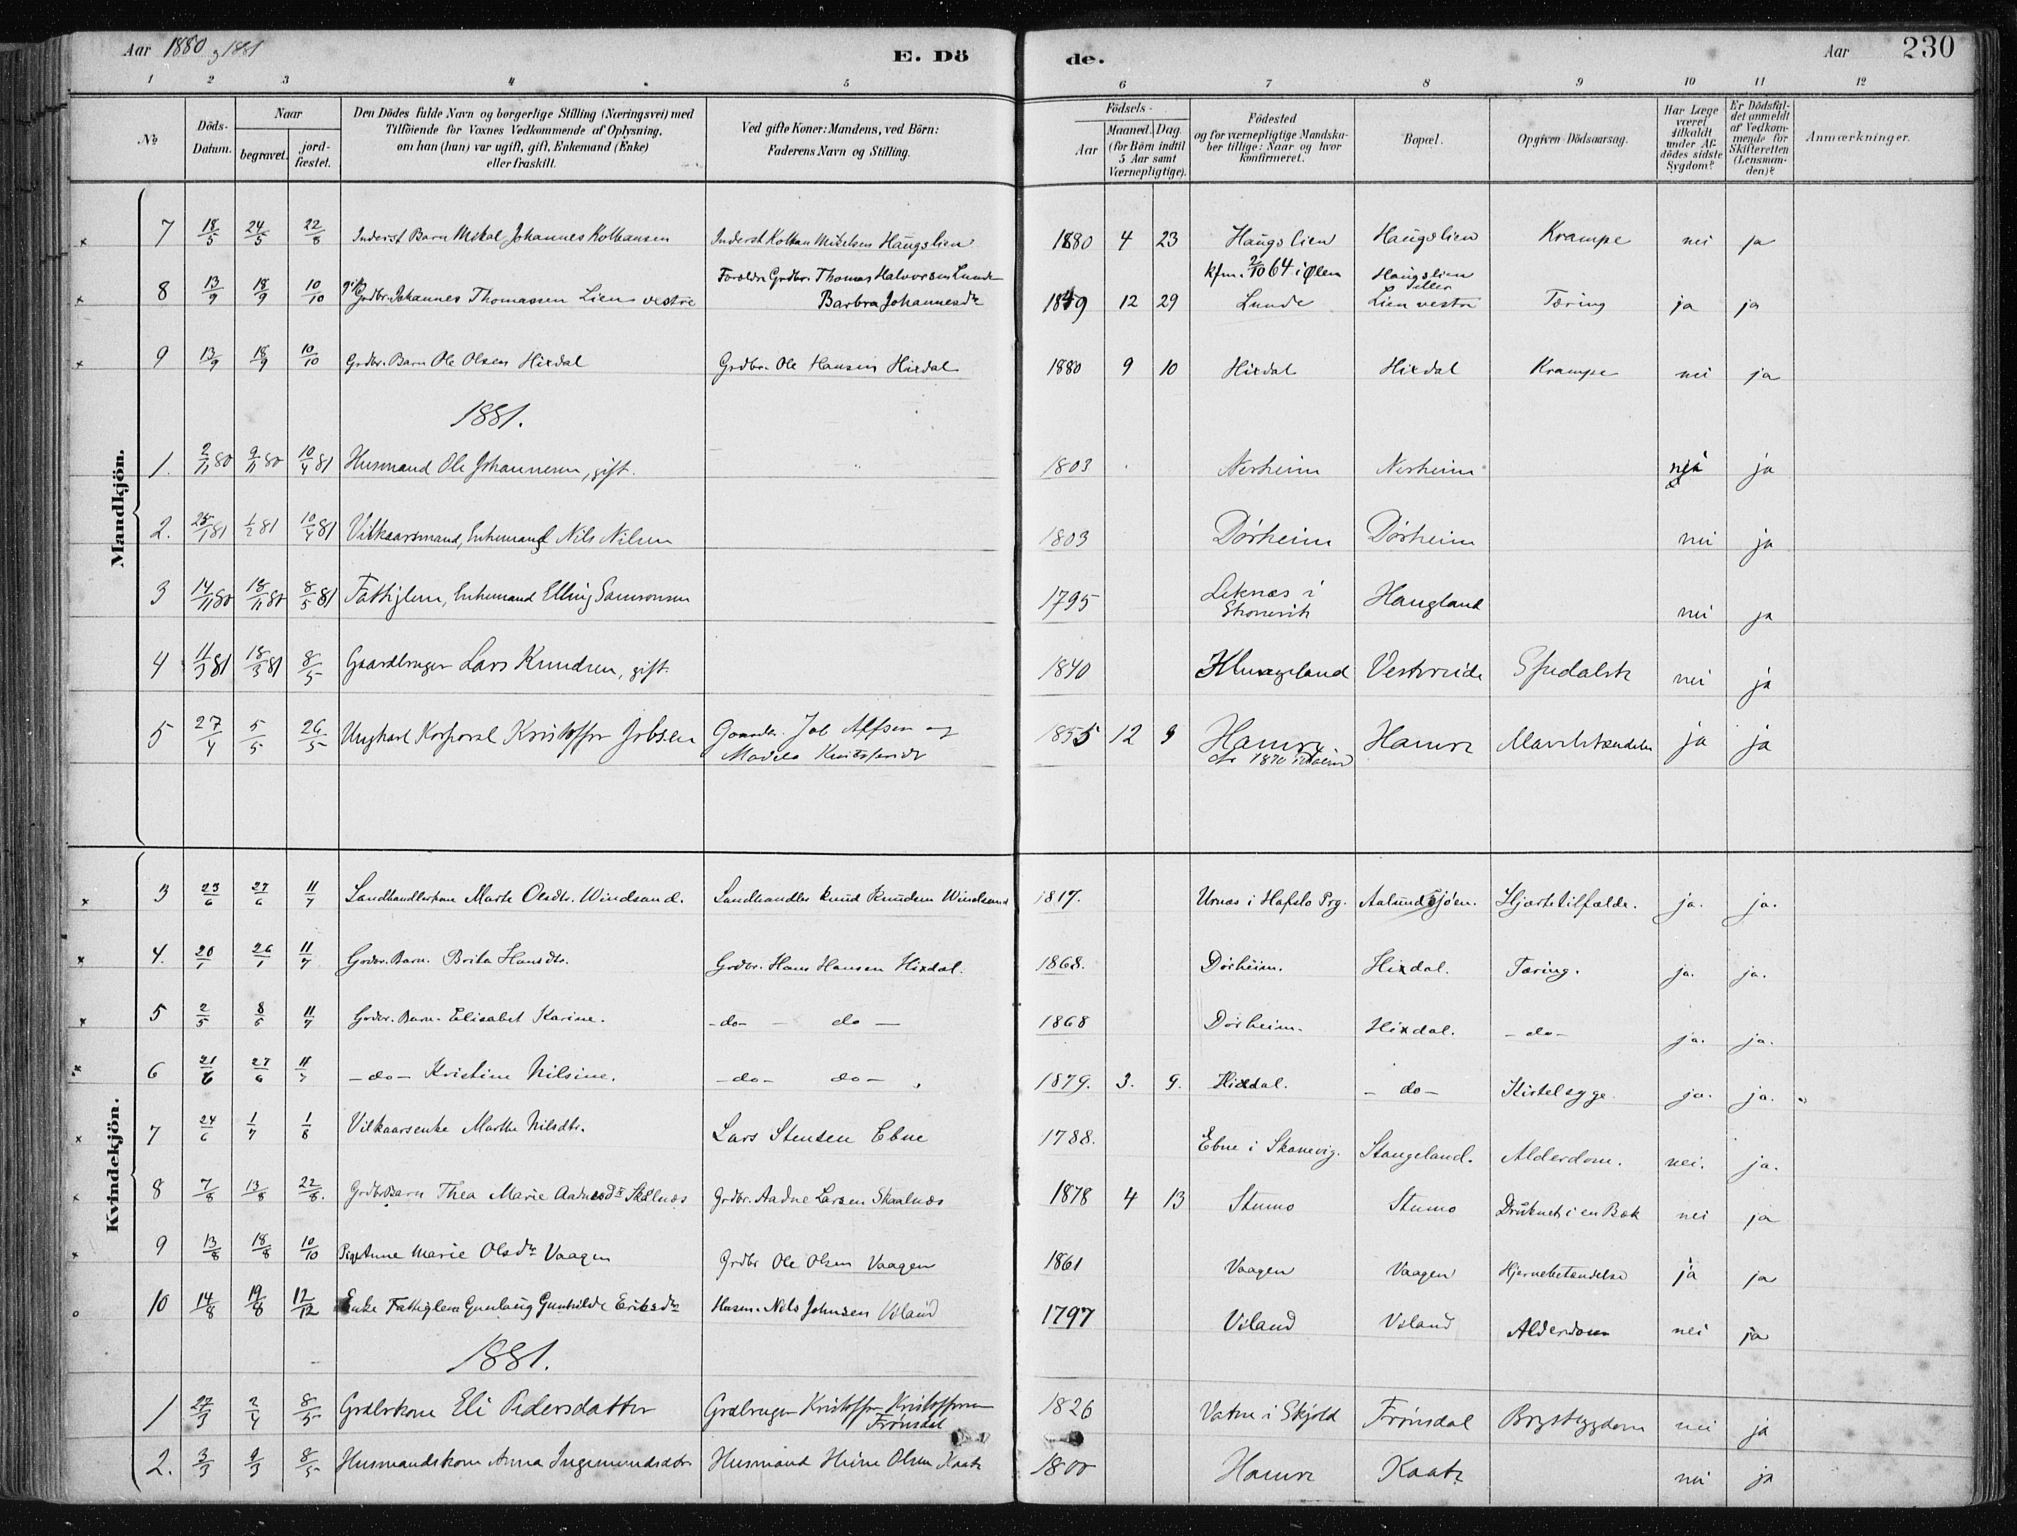 Aar 1880 og 1881 E. Dö de. Aar 230
1 2 3 4 5 6 7 8 9 10 11 12
№ Döds-Datum. Naar begravet. jord-fæstet. Den Dödes fulde Navn og borgerlige Stilling (Næringsvei) med Tilföiende for Voxnes Vedkommende af Oplysning, om han (hun) var ugift, gift, Enkemand (Enke) eller fraskilt. Ved gifte Koner: Mandens, ved Börn: Faderens Navn og Stilling. Födsels- Aar Maaned. Dag. (for Börn indtil 5 Aar samt Værnepligtige). Födested og for værnepligtige Mandskaber tillige: Naar og hvor konfirmeret. Bopæl. Opgiven Dödsaarsag. Har Læge været tilkaldt under Afdödes sidste Sygdom? Er Dödsfaldet anmeldt af Vedkommende for Skifteretten (Lensmanden)? Anmærkninger.
Mandkjön.
7 18/5 24/5 22/8 Inderst Barn Mikal Johannes Kolhansen Inderst Mikelsen Haugslien 1880 4 23 Haugslien Haugslien Krampe nei ja
8 13/9 18/9 10/10 Grdbr. Johannes Thomassen Lien vestre Forældre Grdbr. Thomas Halvorsen Lunde Barbra Johannesdtr 1849 12 29 kfm. 2/10 64 i Ølen Lunde Haugslien Lien vestre Tæring ja ja
9 13/9 18/9 10/10 Grdbr. Barn Ole Olsen Hixdal Grdbr. Ole Hansen Hixdal 1880 9 10 Hixdal Hixdal Krampe nei ja
1881.
1. 2/11 80 9/11 80 10/4 81 Husmand Ole Johannesen, gift. 1803 Nerheim Nerheim ja
2. 25/1 81 1/2 81 10/4 81 Vilkaarsmand, Enkemand Nils Nilsen 1803 Dørheim Dørheim nei ja
3 14/11 80 18/11 80 8/5 81 Fattiglem, Enkemand Elling Samsonsen 1795 Leknæs i Skonevik Haugland nei ja
4 11/3 81 18/3 81 8/5 Gaardbruger Lars Knudsen, gift. 1840 Hluageland Vestvreide Spedalsk nei ja
5 27/4 5/5 26/5 Ungkarl Korporal Kristoffer Jobsen Gaardbr. Job Alfsen og 1855 12 9 Hamre Hamre ja ja
Kvindekjön.
3 23/6 27/6 11/7 Landhandlerkone Marte Olsdtr. Windsand. Landhandler Knud Knudsen Windsand 1817. Urnæs i Hafslo Prg. Aalundsjøen. Hjertetilfælde. ja. ja.
4. 20/1 26/1 11/7 Grdbr. Barn. Brita Hansdtr. Grdbr. Hans Hansen Hixdal. 1868. Dörheim. Hixdal. Tæring. ja. ja.
5 2/5 8/5 11/7 Grdbr. Barn. Elisabet Karine. -do- do- 1868 Dörheim. Hixdal. -do- ja. ja.
6 21/6 27/6 11/7 -do- Kristine Nilsine. -do- do- 1879. 3. 9. Hixdal. -do- Kirtelsyge. ja. ja.
7 24/6 1/7 1/8 Vilkaarsenke Marthe Nilsdtr. Lars Stensen Ebne 1788. Ebne i Skanevig. Stangeland. Alderdom. nei. ja.
8 7/8 13/8 22/8. Grdbr Barn Thea Marie Aadnesdtr Skålnæs Grdbr. Aadne Larsen Skaalnæs 1878 4 13 Stumo Stumo Druknet i en Bæk nei ja
9 13/8 18/8 10/10 Pige Anne Marie Olsdtr Vaagen Grdbr Ole Olsen Vaagen 1861 Vaagen Vaagen Hjernebetændelse ja ja
10 14/8 19/8 12/12 Enke Fattiglem Gunlaug Gunhilde Eriksdtr Husm. Nils Johnsen Viland 1797 Viland Viland Alderdom nei ja
1881.
1 27/3 2/4 8/5 Grdbrkone Eli Pedersdatter Grdbruger Kristoffer Kristoffersen Frønsdal 1826 Vatne i Skjold Frønsdal Brystsygdom nei ja
2. 3/3 9/3 8/5 Husmandskone Anna Ingemundsdtr Husmand Heine Olsen Kaate 1800 Hamre Kaate nei ja